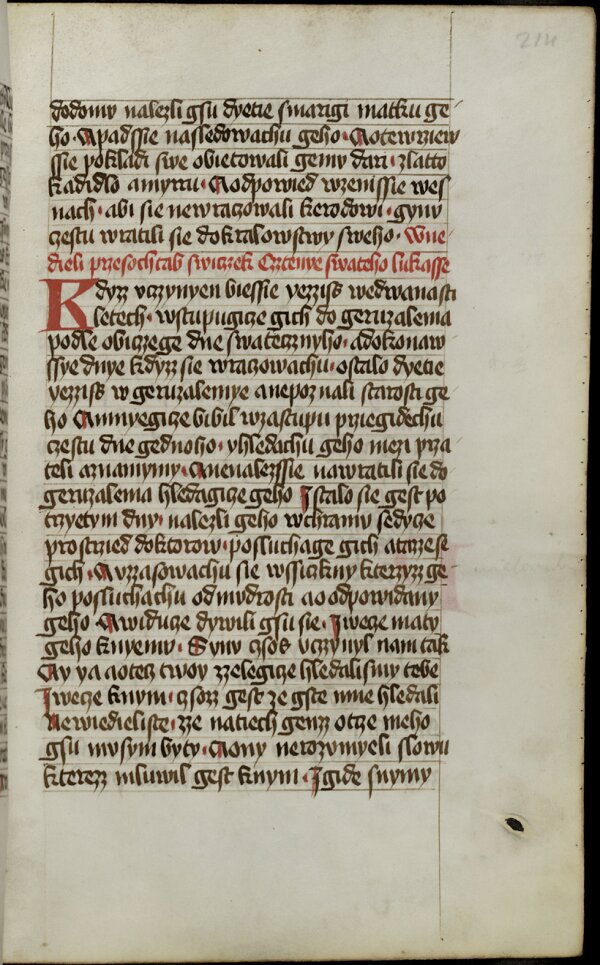 214
dodomv nalezli gsu dyetie smarigi matku ge
ho · Apadssie nasledowachu geho · Aotewrziew
ssie pokladi swe obietowali gemv dari · zlatto
kadidlo amyrru · Aodpowied wzenissie wes
nach · abi sie newraczowali kerodowi · gynv
czestu wratili sie dokralowstwy sweho · Wne
dieli przesochtab swiczek Cztenye swateho lukasse
Kdyzz vczynyen biessie yezziss wedwanasti
letech · wstupugicze gich do geruzalema
podle obiczege dne swateczznyho · adokonaw
ssye dnye kdyzz sie wraczowachu · ostalo dyetie
yezziss w geruzalemye anepoznali starosti ge
ho Amnyegicze bi bil wzastupu przigidechu
czestu dne gednoho · yhledachu geho mezi prza
teli aznamymy · Anenalezssie nawratili sie do
geruzalema hledagicze geho Istalo sie gest po
trzyetym dny · nalezli geho wchramv sedycze
prostrzied doktorow · posluchage gich atazzese
gich · Auzzasowachu sie wssiczkny kterzyzz ge
ho posluchachu odmvdrosti ao odpowidany
geho Awiducze dywili gsu sie · Iwecze maty
geho knyemv · Synv czsos vczynyl nam tak
Ay ya aotecz twoy zzelegicze hledalismy tebe
Iwecze knym · czsozz gest ze gste mne hledali
Newiedieliste · zze natiech genzz otcze meho
gsu mvsym byty · Aony nerozvmyeli slowu
kterezz mluwil gest knym · Igide snymy